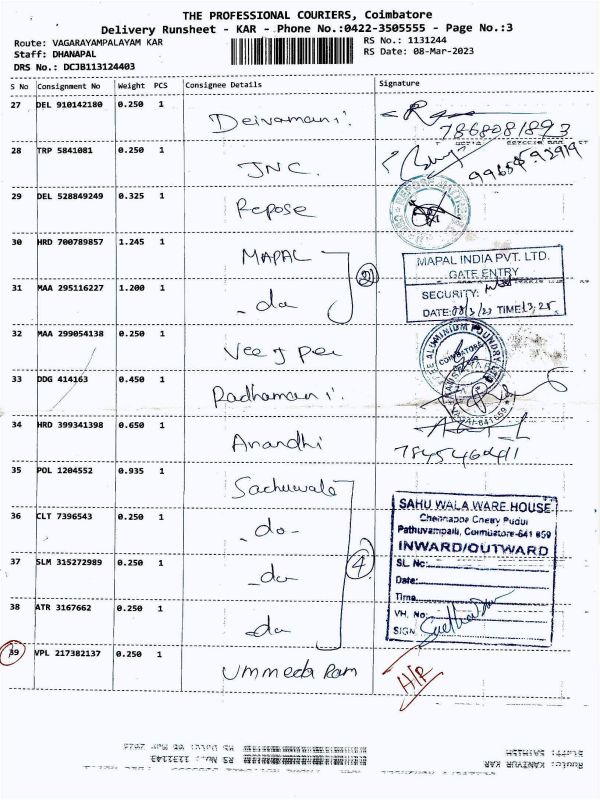 THE PROFESSIONAL COURIERS, Coimbatore
Delivery Runsheet - KAR - Phone No.:0422-3505555 - Page No.:3
Route: VAGARAYAMPALAYAM KAR RS No.: 1131244
Staff: DHANAPAL RS Date: 08-Mar-2023
DRS No.: DCJB113124403
S No Consignment No Weight PCS Consignee Details Signature
27 DEL 910142180 0.250 1 Deivamani 7868081893
28 TRP 5841081 0.250 1 JNC
29 DEL 528849249 0.325 1 Repose
30 HRD 700789857 1.245 1 MAPAL
31 MAA 295116227 1.200 1 -do
MAPAL INDIA PVT. LTD.
GATE ENTRY
SECURITY:
DATE:08/3/23 TIME:13,25
32 MAA 299054138 0.250 1
ALUMINIUM FOUNDRY
COIMBATORE
33 DDG 414163 0.450 1 Radhamani
34 HRD 399341398 0.650 1 Anandhi
35 POL 1204552 0.935 1 Sachuwala
36 CLT 7396543 0.250 1 -do-
37 SLM 315272989 0.250 1 -do
38 ATR 3167662 0.250 1 -do
4
SAHU WALA WARE HOUSE
Pathuvampalli, Coimbatore-641 659
INWARD/OUTWARD
SL. No:
Date:
Time
VH. No:
SIGN
39 VPL 217382137 0.250 1 Ummeda Ram H/R